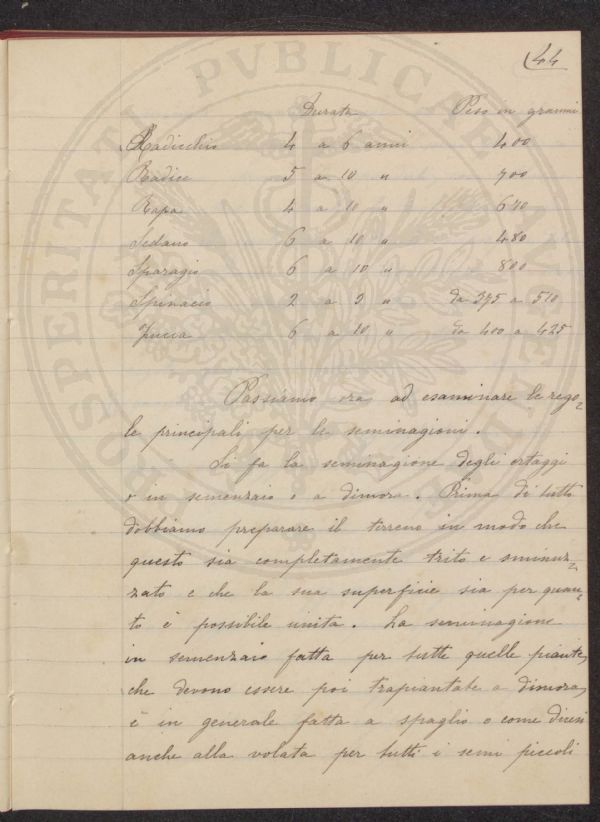 44
Durata Peso in grammi
Radicchio 4 a 6 anni 400
Radice 5 a 10 " 700
Rapa 4 a 10 " 670
Sedano 6 a 10 " 480
Sparagio 6 a 10 " 800
Spinacio 2 a 3 " da 375 a 510
Zucca 6 a 10 " da 400 a 425
Passiamo ora ad esaminare le rego-
le principali per le seminagioni.
Si fa la seminagione degli ortaggi
o in semenzaio o a dimora. Prima di tutto
dobbiamo preparare il terreno in modo che
questo sia completamente trito e sminuz-
zato e che la sua superficie sia per quan-
to è possibile unita. La seminagione
in semenzaio fatta per tutte quelle piante,
che devono essere poi trapiantate a dimora,
è in generale fatta a spaglio o come dicesi
anche alla volata per tutti i semi piccoli
PROSPERITATI PVBLICAE AVGENDAE